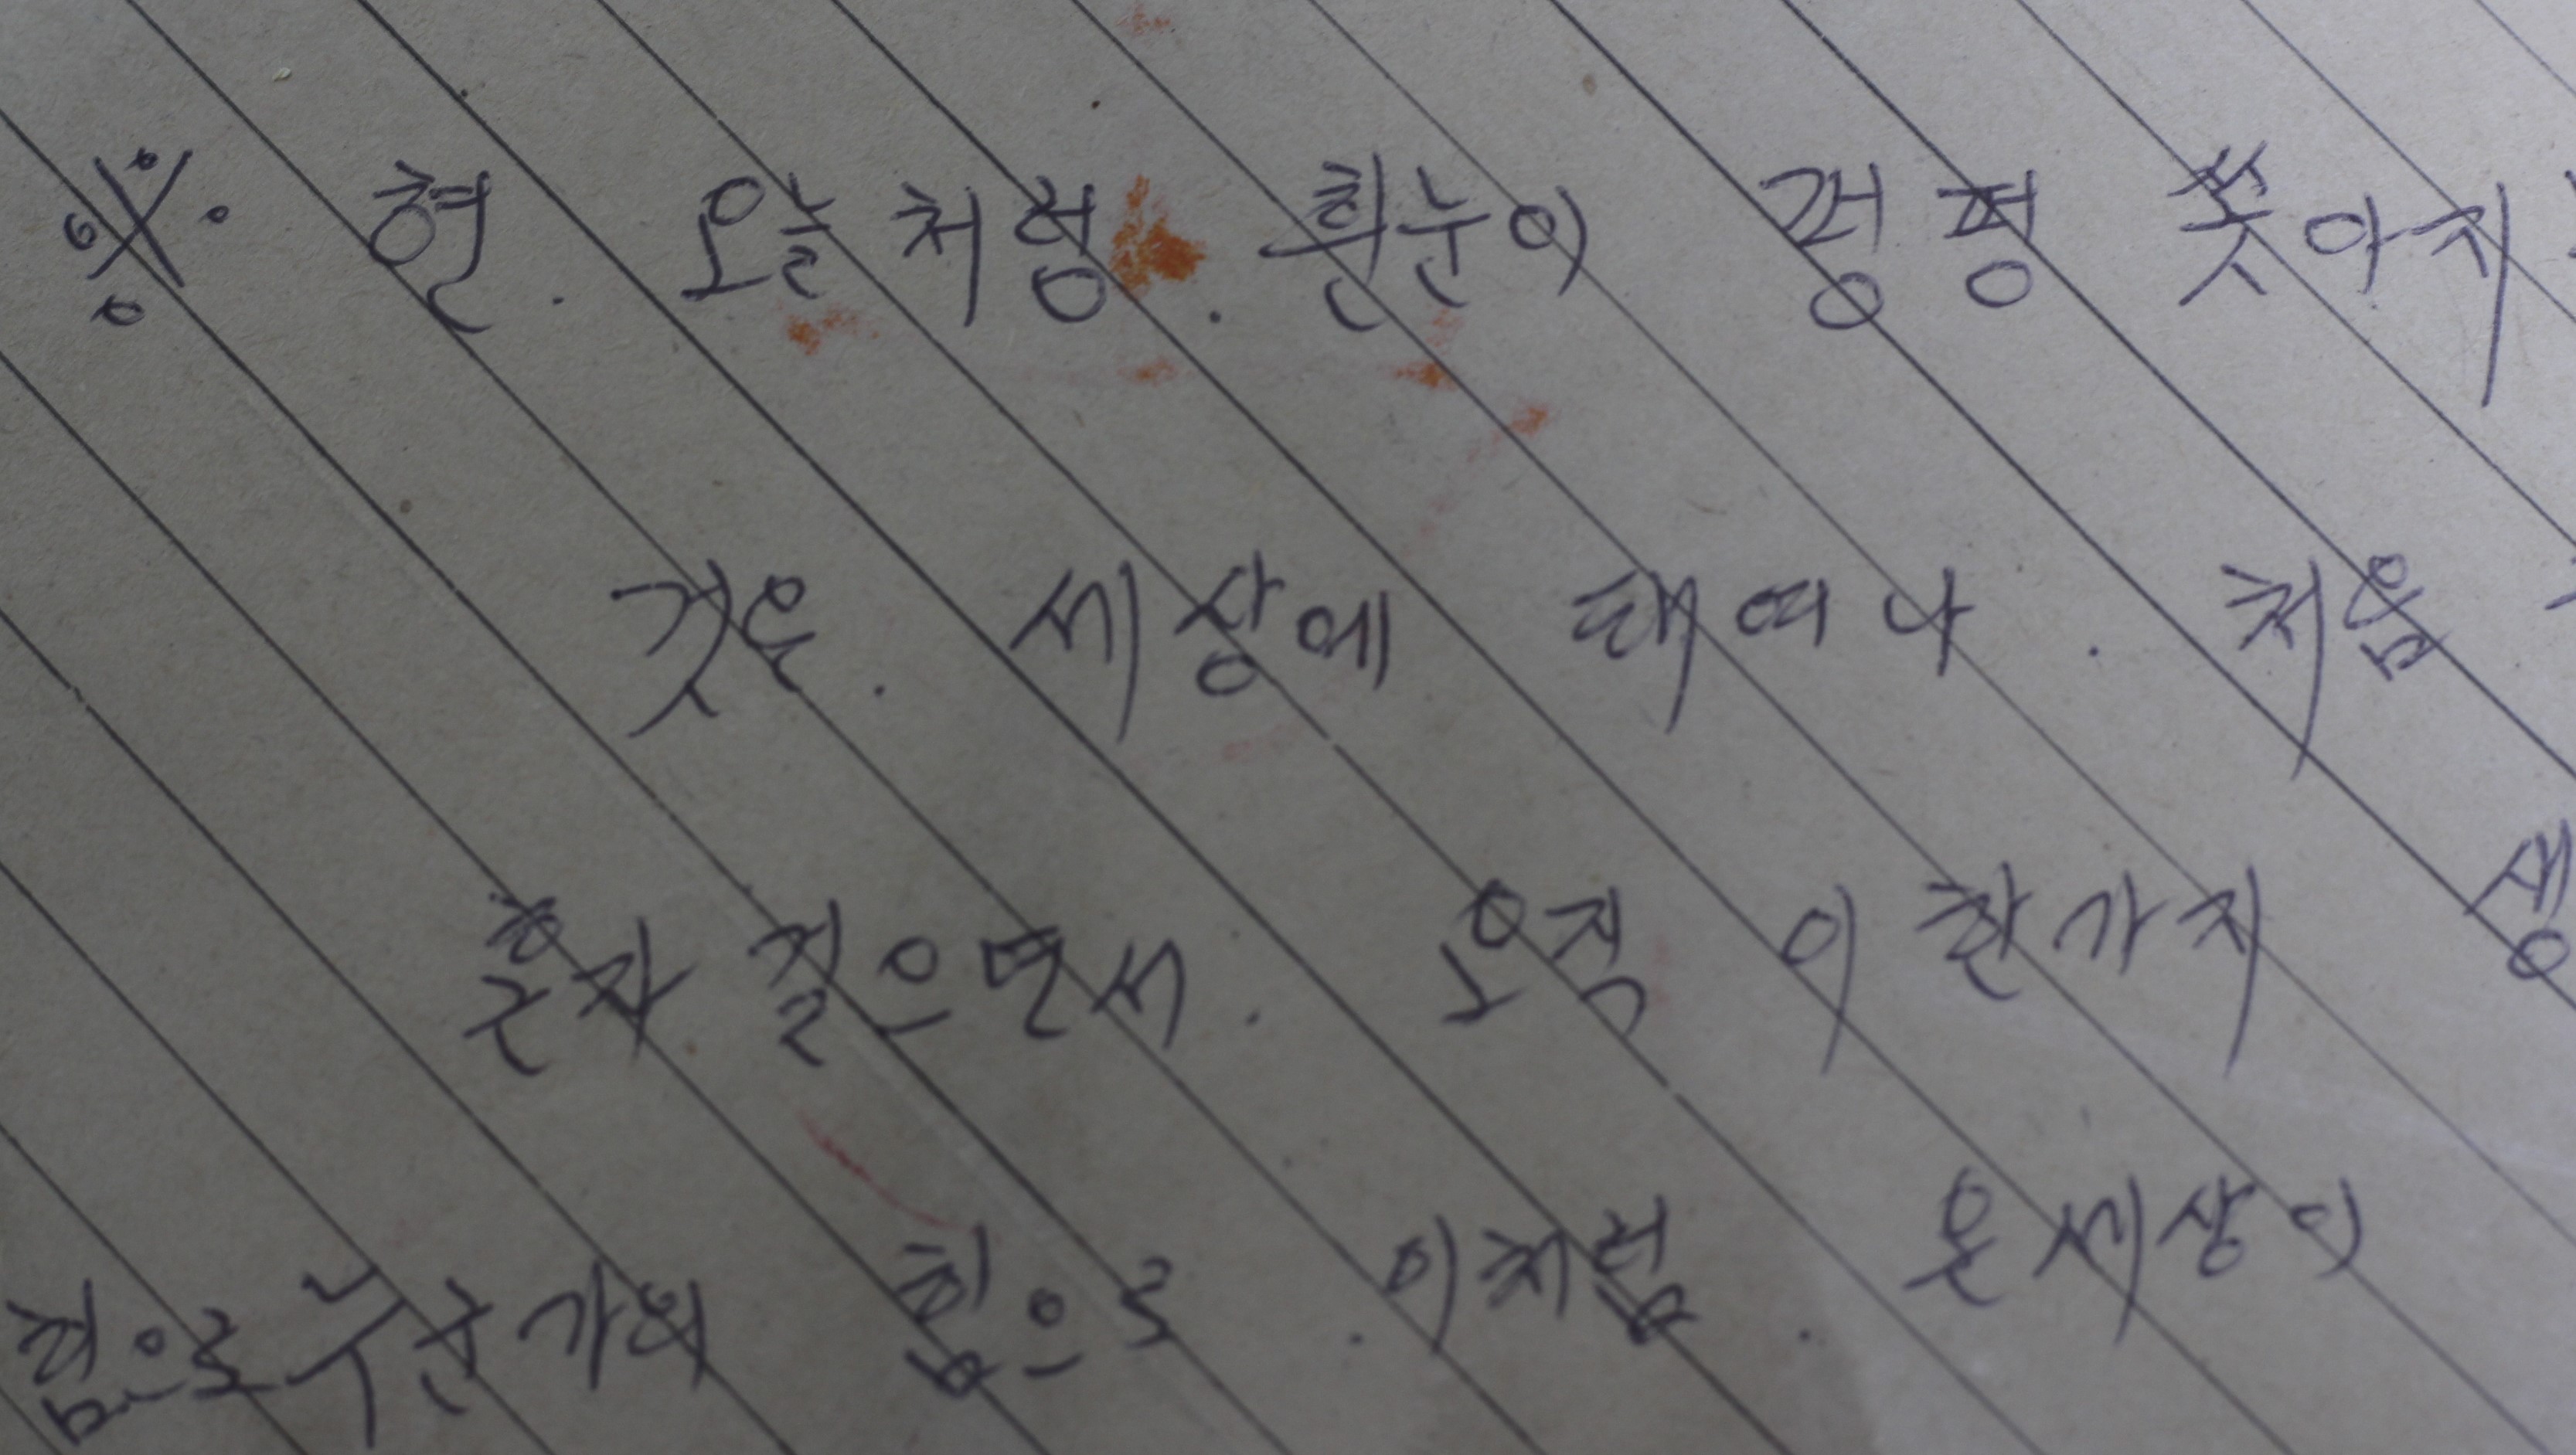 ※. 현. 오늘처럼. 흰눈이 펑펑 쏫아지
것은. 세상에 태여나. 처음
혼자 걸으면서. 오직 이 한가지 생
힘으로 누군가의 힘으로. 이처럼. 온세상이